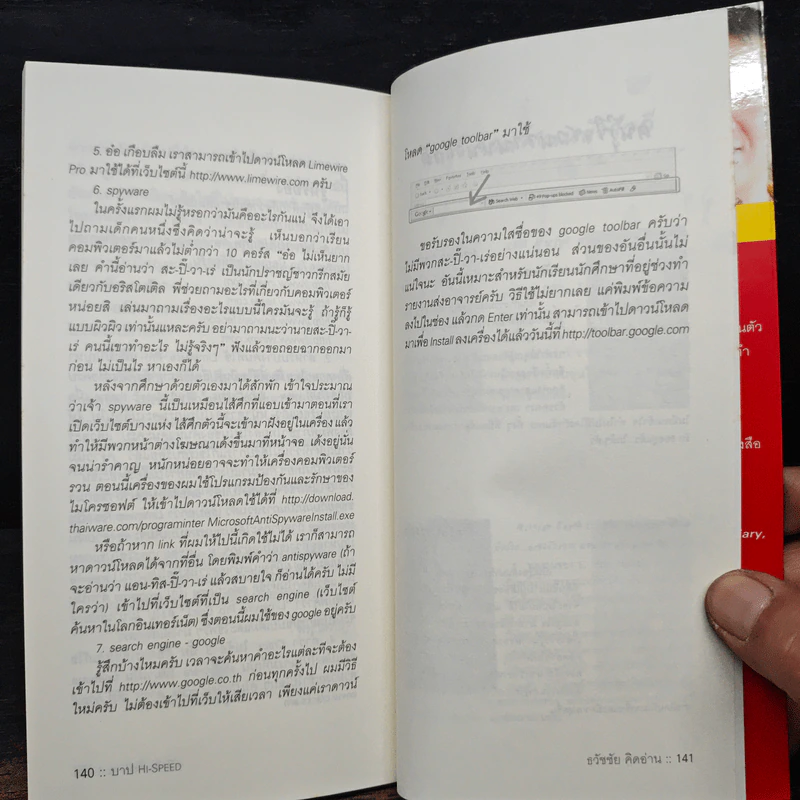 5. อ๋อ เกือบลืม เราสามารถเข้าไปดาวน์โหลด Limewire
Pro มาใช้ได้ที่เว็บไซต์นี้ http://www.limewire.com ครับ
6. spyware
ในครั้งแรกผมไม่รู้หรอกว่ามันคืออะไรกันแน่ จึงได้เอา
ไปถามเด็กคนหนึ่งซึ่งคิดว่าน่าจะรู้ เห็นบอกว่าเรียน
คอมพิวเตอร์มาแล้วไม่ต่ำกว่า 10 คอร์ส "อ๋อ ไม่เห็นยาก
เลย คำนี้อ่านว่า สะ-ปี๊-วา-เร่ เป็นนักปราชญ์ชาวกรีกสมัย
เดียวกับอริสโตเติล พี่ช่วยถามอะไรที่เกี่ยวกับคอมพิวเตอร์
หน่อยสิ เล่นมาถามเรื่องอะไรแบบนี้ใครมันจะรู้ ถ้ารู้ก็รู้
แบบผิวผิว เท่านั้นแหละครับ อย่ามาถามนะว่านายสะ-ปี๊-วา-
เร่ คนนี้เขาทำอะไร ไม่รู้จริงๆ" ฟังแล้วขอถอยฉากออกมา
ก่อน ไม่เป็นไร หาเองก็ได้
หลังจากศึกษาด้วยตัวเองมาได้สักพัก เข้าใจประมาณ
ว่าเจ้า spyware นี้เป็นเหมือนไส้ศึกที่แอบเข้ามาตอนที่เรา
เปิดเว็บไซต์บางแห่ง ไส้ศึกตัวนี้จะเข้ามาฝังอยู่ในเครื่อง แล้ว
ทำให้มีพวกหน้าต่างโฆษณาเด้งขึ้นมาที่หน้าจอ เด้งอยู่นั่น
จนน่ารำคาญ หนักหน่อยอาจจะทำให้เครื่องคอมพิวเตอร์
รวน ตอนนี้เครื่องของผมใช้โปรแกรมป้องกันและรักษาของ
ไมโครซอฟต์ ให้เข้าไปดาวน์โหลดใช้ได้ที่ http://download.
thaiware.com/programinter MicrosoftAntiSpywareInstall.exe
หรือถ้าหาก link ที่ผมให้ไปนี้เกิดใช้ไม่ได้ เราก็สามารถ
หาดาวน์โหลดได้จากที่อื่น โดยพิมพ์คำว่า antispyware (ถ้า
จะอ่านว่า แอน-ทิส-ปี๊-วา-เร่ แล้วสบายใจ ก็อ่านได้ครับ ไม่มี
ใครว่า) เข้าไปที่เว็บไซต์ที่เป็น search engine (เว็บไซต์
ค้นหาในโลกอินเทอร์เน็ต) ซึ่งตอนนี้ผมใช้ของ google อยู่ครับ
7. search engine - google
รู้สึกบ้างไหมครับ เวลาจะค้นหาคำอะไรแต่ละทีจะต้อง
เข้าไปที่ http://www.google.co.th ก่อนทุกครั้งไป ผมมีวิธี
ใหม่ครับ ไม่ต้องเข้าไปที่เว็บให้เสียเวลา เพียงแค่เราดาวน์
140 :: บาป HI-SPEED
โหลด "google toolbar" มาใช้
ขอรับรองในความใสซื่อของ google toolbar ครับว่า
ไม่มีพวกสะ-ปี๊-วา-เร่อย่างแน่นอน ส่วนของอันอื่นนั้นไม่
แน่ใจนะ อันนี้เหมาะสำหรับนักเรียนนักศึกษาที่อยู่ช่วงทำ
รายงานส่งอาจารย์ครับ วิธีใช้ไม่ยากเลย แค่พิมพ์ข้อความ
ลงไปในช่อง แล้วกด Enter เท่านั้น สามารถเข้าไปดาวน์โหลด
มาเพื่อ Install ลงเครื่องได้แล้ววันนี้ที่ http://toolbar.google.com
ธวัชชัย คิดอ่าน :: 141